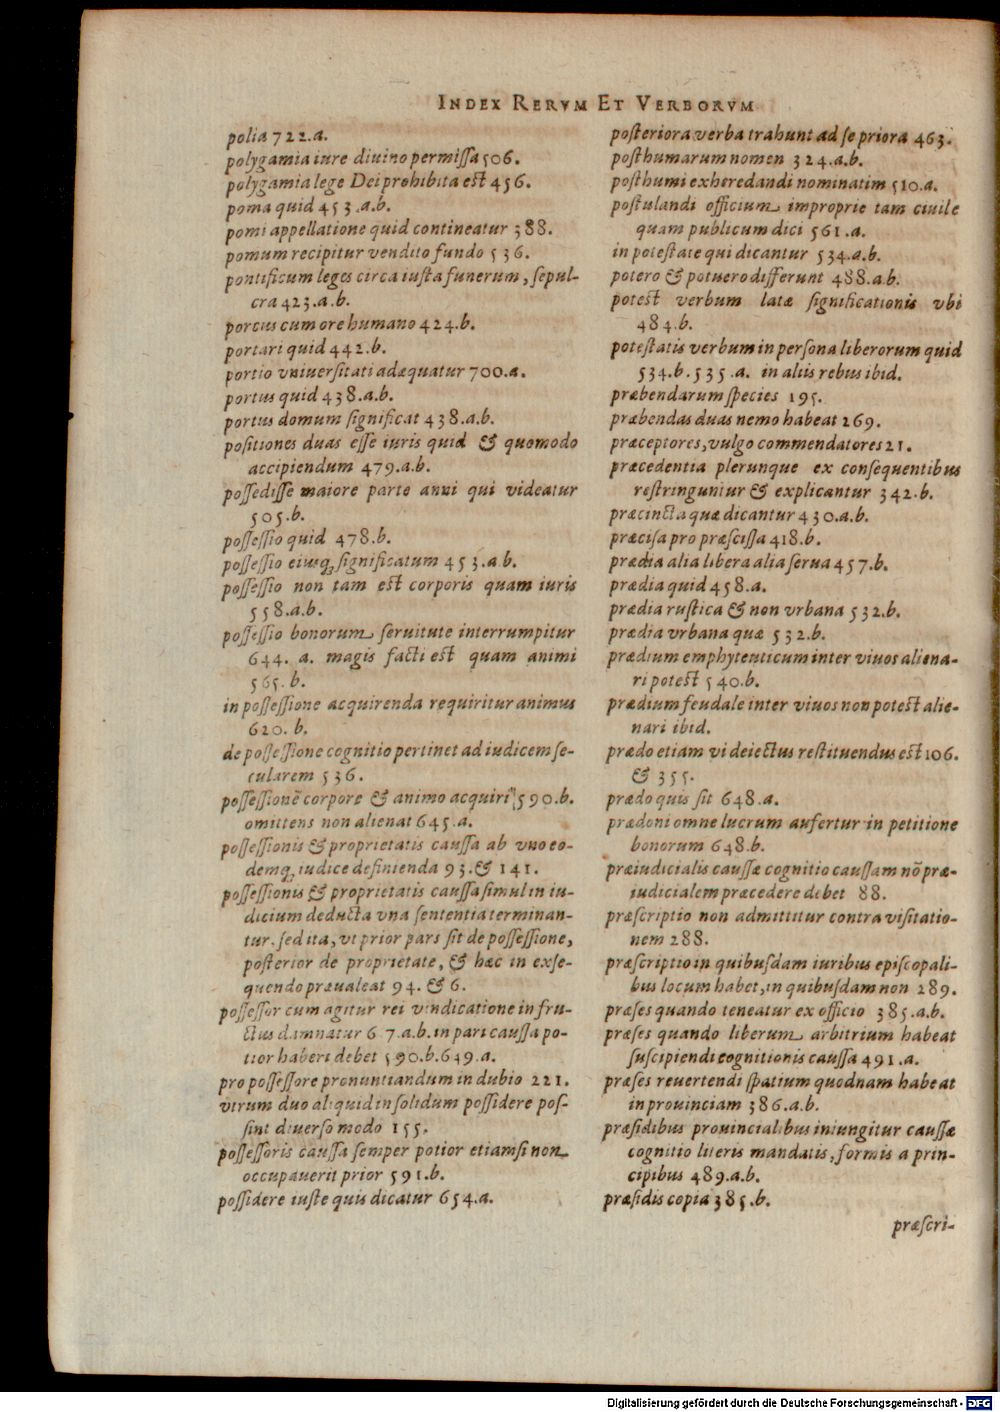 INDEX RERVM ET VERBORVM
polia 722.a.
polygamia iure diuino permiſſa 506.
polygamia lege Dei prohibita est 456.
poma quid 453.a.b.
pomi appellatione quid contineatur 388.
pomum recipitur vendito fundo 536.
pontificum leges circa iusta funerum, ſepul-
cra 423.a.b.
porcus cum ore humano 424.b.
portari quid 442.b.
portio vniuerſitati adæquatur 700.a.
portus quid 438.a.b.
portus domum ſignificat 438.a.b.
poſitiones duas eſſe iuris quid & quomodo
accipiendum 479.a.b.
poſſediſſe maiore parte anni qui videatur
505.b.
poſſeſſio quid 478.b.
poſſeſſio eiusq; ſignificatum 453.a.b.
poſſeſſio non tam est corporis quam iuris
558.a.b.
poſſeſſio bonorum ſeruitute interrumpitur
644. a. magis facti est quam animi
565. b.
in poſſeſſione acquirenda requiritur animus
620. b.
de poſſeſſione cognitio pertinet ad iudicem ſe-
cularem 536.
poſſeſſionē corpore & animo acquiri 590.b.
omittens non alienat 645.a.
poſſeſſionis & proprietatis cauſſa ab vno eo-
demq; iudice definienda 93. & 141.
poſſeſſionis & proprietatis cauſſa ſimul in iu-
dicium deducta vna ſententia terminan-
tur. ſed ita, vt prior pars ſit de poſſeſſione,
poſterior de proprietate, & hæc in exſe-
quendo præualeat 94. & 6.
poſſeſſor cum agitur rei vindicatione in fru-
ctus damnatur 6 7.a.b. in pari cauſſa po-
tior haberi debet 590.b.649.a.
pro poſſeſſore pronuntiandum in dubio 221.
vtrum duo aliquid in ſolidum poſſidere poſ-
ſint diuerſo modo 155.
poſſeſſoris cauſſa ſemper potior etiamſi non
occupauerit prior 591.b.
poſſidere iuſte quis dicatur 654.a.
poſteriora verba trahunt ad ſe priora 463.
poſthumarum nomen 324.a.b.
poſthumi exheredandi nominatim 510.a.
poſtulandi officium improprie tam ciuile
quam publicum dici 561.a.
in poteſtate qui dicantur 534.a.b.
potero & potuero differunt 488.a.b.
potest verbum latæ ſignificationis vbi
484.b.
poteſtatis verbum in perſona liberorum quid
534.b.535.a. in aliis rebus ibid.
præbendarum ſpecies 195.
præbendas duas nemo habeat 269.
præceptores, vulgo commendatores 21.
præcedentia plerunque ex conſequentibus
reſtringuntur & explicantur 342.b.
præcincta quæ dicantur 430.a.b.
præciſa pro præſciſſa 418.b.
prædia alia libera alia ſerua 457.b.
prædia quid 458.a.
prædia ruſtica & non vrbana 532.b.
prædia vrbana quæ 532.b.
prædium emphyteuticum inter viuos aliena-
ri potest 540.b.
prædium feudale inter viuos non potest alie-
nari ibid.
prædo etiam vi deiectus reſtituendus est 106.
& 355.
prædo quis ſit 648.a.
prædoni omne lucrum aufertur in petitione
bonorum 648.b.
præiudicialis cauſſæ cognitio cauſſam nō præ-
iudicialem præcedere debet 88.
præſcriptio non admittitur contra viſitatio-
nem 288.
præſcriptio in quibuſdam iuribus epiſcopali-
bus locum habet, in quibuſdam non 289.
præſes quando teneatur ex officio 385.a.b.
præſes quando liberum arbitrium habeat
ſuſcipiendi cognitionis cauſſa 491.a.
præſes reuertendi ſpatium quodnam habeat
in prouinciam 386.a.b.
præſidibus prouincialibus iniungitur cauſſæ
cognitio literis mandatis, formis a prin-
cipibus 489.a.b.
præſidis copia 385.b.
præſcri-
Digitalisierung gefördert durch die Deutsche Forschungsgemeinschaft - DFG